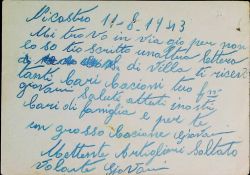 Nicastro 11-8-1943
Mi trovo in via gio per non
lo so tio scritto unaltra lettera
di villa ti ricevi
tanti cari bacioni tuo
giovani Saluti attuti inostri
cari di famiglia e per te
un grosso bacione Giovani
Mettente Artigliere Soltato
Volante Giovani